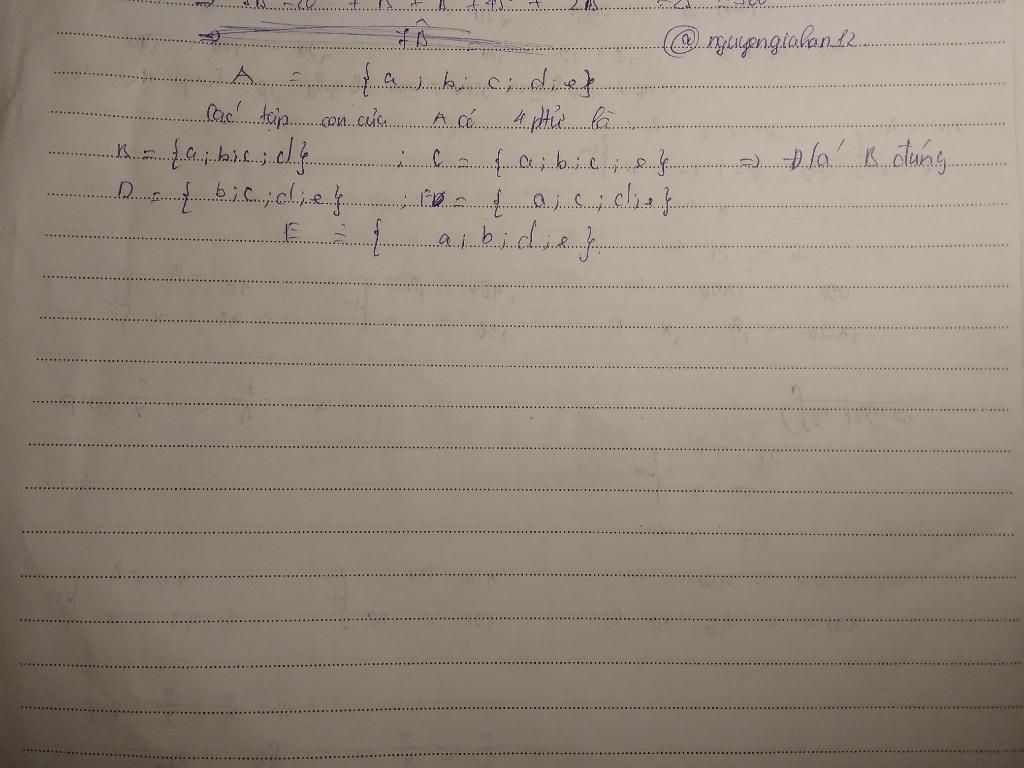 @ nguyengiahan12
A = { a ; b ; c ; d ; e }
Các tập con của A có 4 ptử là
B = { a ; b ; c ; d } ; C = { a ; b ; c ; e } => Đ/á B đúng
D = { b ; c ; d ; e } ; F = { a ; c ; d ; e }
E = { a ; b ; d ; e }